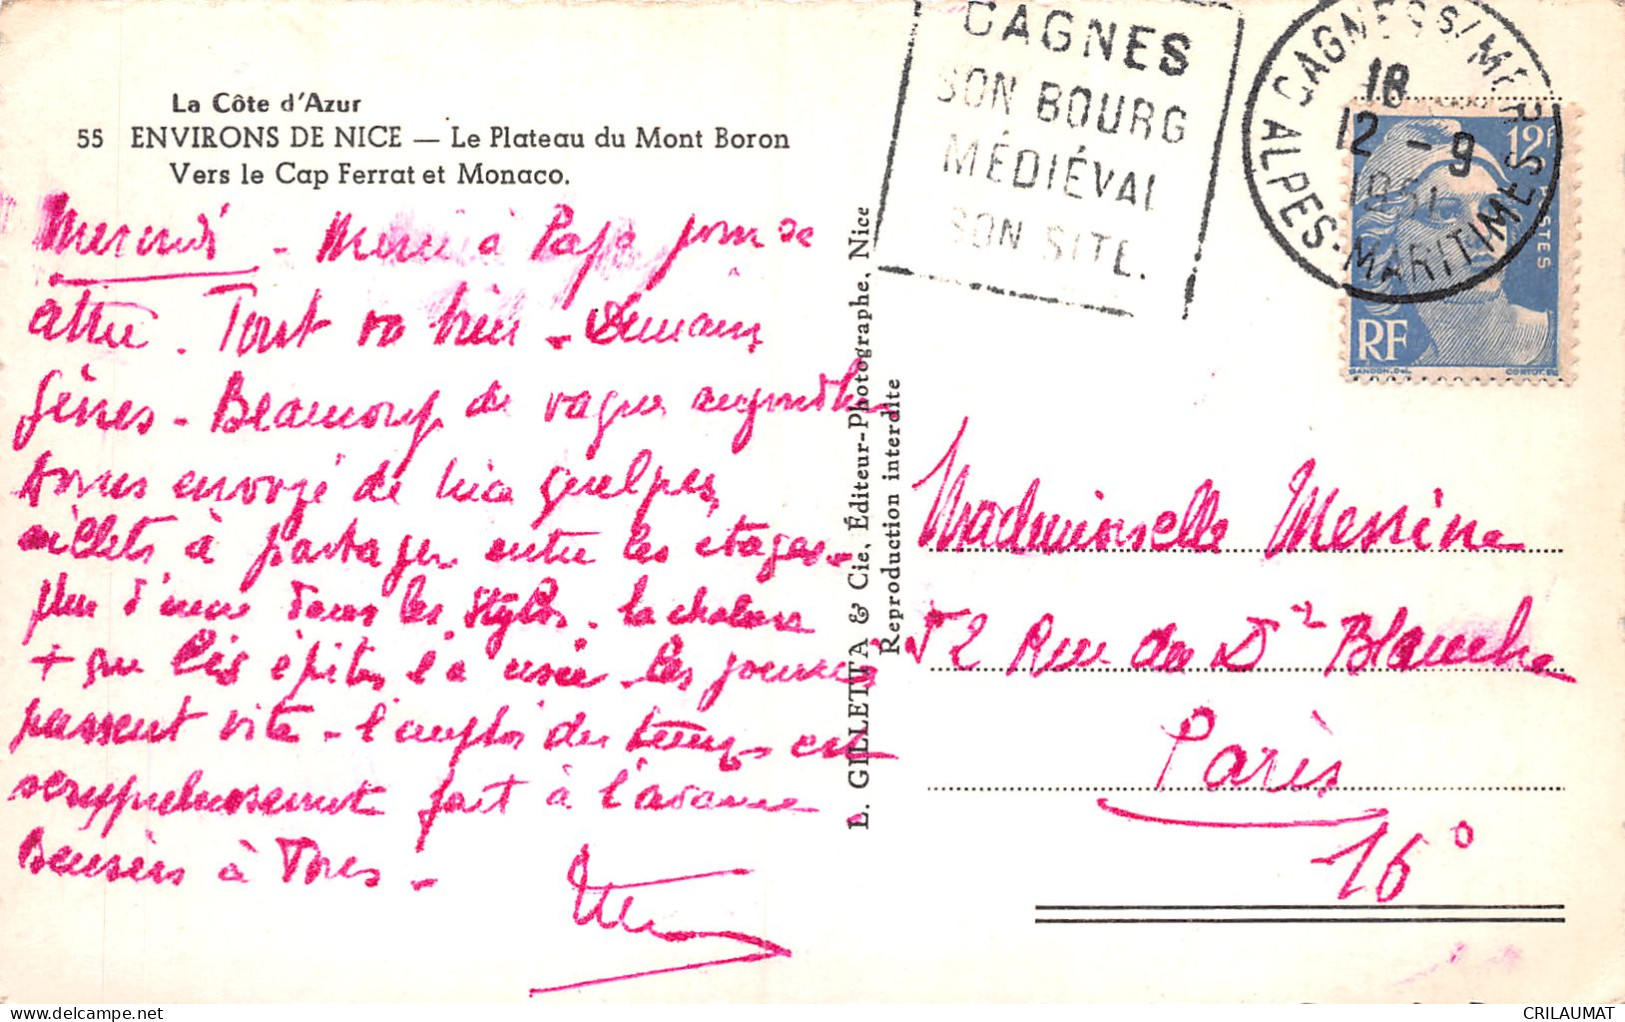 La Côte d'Azur
55 ENVIRONS DE NICE — Le Plateau du Mont Boron
Vers le Cap Ferrat et Monaco.
Mercredi - Merci à Papa pour sa
lettre. Tout va bien - Demain
Gênes - Beaucoup de vagues aujourd'hui
avons envoyé de Nice quelques
œillets à partager entre les étages -
plus d'encre dans les stylos - la chaleur
+ que les épîtres l'a usée - les journées
passent vite - l'emploi du temps est
scrupuleusement fait à l'avance
Baisers à Tous -
L. GILLETTA & Cie, Éditeur-Photographe, Nice
Reproduction interdite
CAGNES
SON BOURG
MÉDIÉVAL
SON SITE.
CAGNES S/MER
18
12 - 9
1951
ALPES-MARITIMES
12F
POSTES
RF
GANDON.DEL.
CORTOT.SC
Mademoiselle Messine
52 Rue du Dr Blanche
Paris
16°
CRILAUMAT